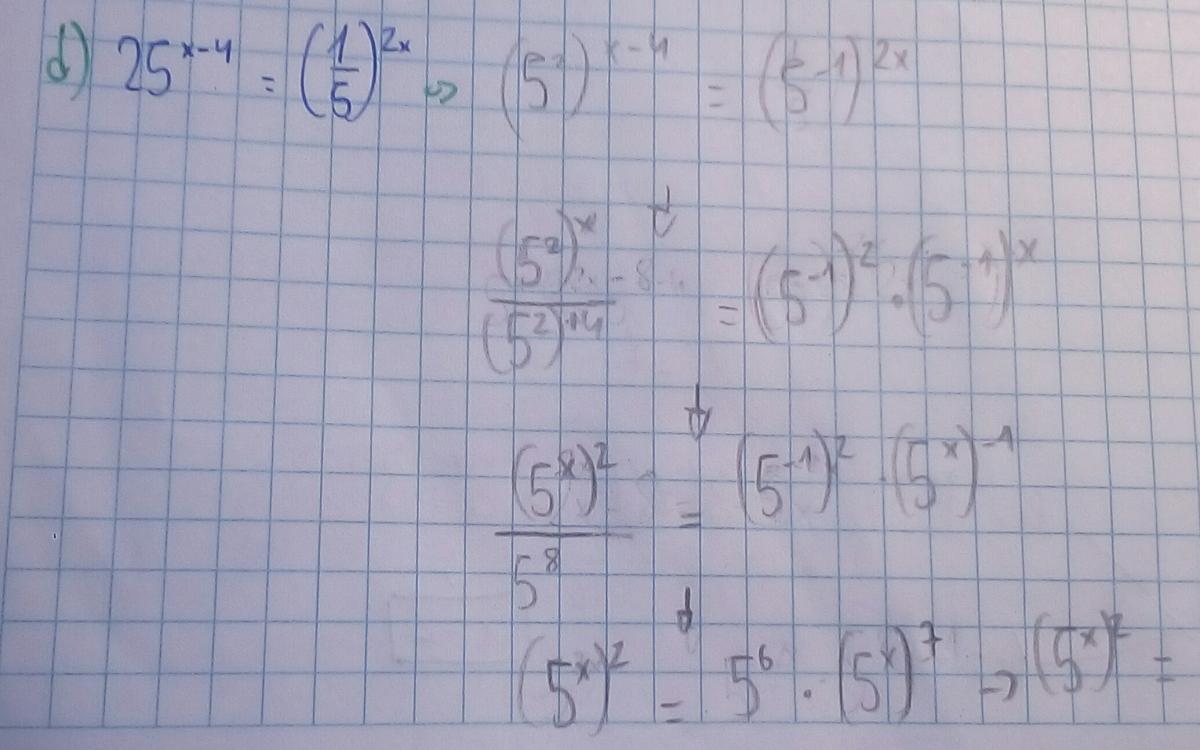 d) 25^{x-4} = (1/5)^{2x} → (5^2)^{x-4} = (5^{-1})^{2x}
↓
(5^2)^x / (5^2)^{+4} = (5^{-1})^2 · (5^{-1})^x
↓
(5^x)^2 / 5^8 = (5^{-1})^2 · (5^x)^{-1}
↓
(5^x)^2 = 5^6 · (5^x)^7 → (5^x)^2 =